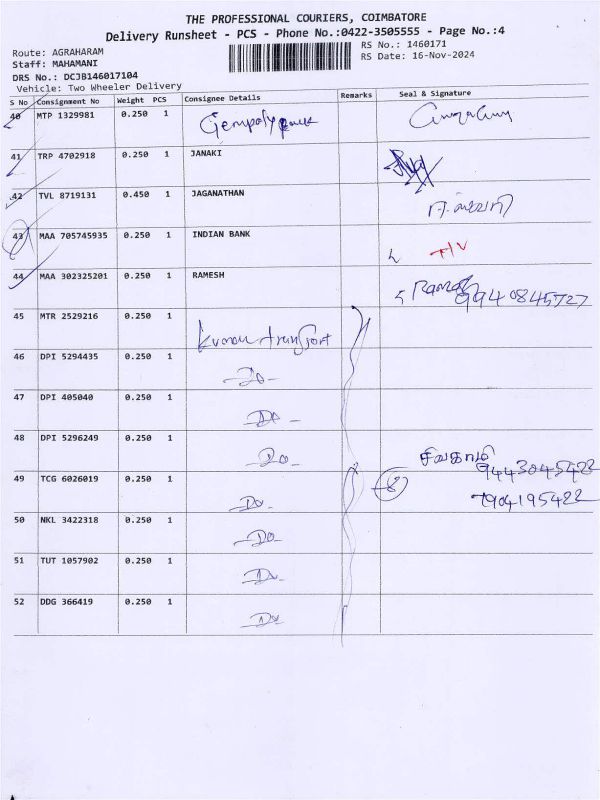 THE PROFESSIONAL COURIERS, COIMBATORE
Delivery Runsheet - PCS - Phone No.:0422-3505555 - Page No.:4
Route: AGRAHARAM
RS No.: 1460171
Staff: MAHAMANI
RS Date: 16-Nov-2024
DRS No.: DCJB146017104
Vehicle: Two Wheeler Delivery
S No Consignment No Weight PCS Consignee Details Remarks Seal & Signature
40 MTP 1329981 0.250 1
41 TRP 4702918 0.250 1 JANAKI
42 TVL 8719131 0.450 1 JAGANATHAN
43 MAA 705745935 0.250 1 INDIAN BANK
44 MAA 302325201 0.250 1 RAMESH Ramesh 9940845727
45 MTR 2529216 0.250 1 Kumaran transport
46 DPI 5294435 0.250 1 -Do-
47 DPI 405040 0.250 1 -Do-
48 DPI 5296249 0.250 1 -Do- சிவகாமி
9443045422
49 TCG 6026019 0.250 1 -Do- 8 7904195422
50 NKL 3422318 0.250 1 -Do-
51 TUT 1057902 0.250 1 -Do-
52 DDG 366419 0.250 1 -Do-